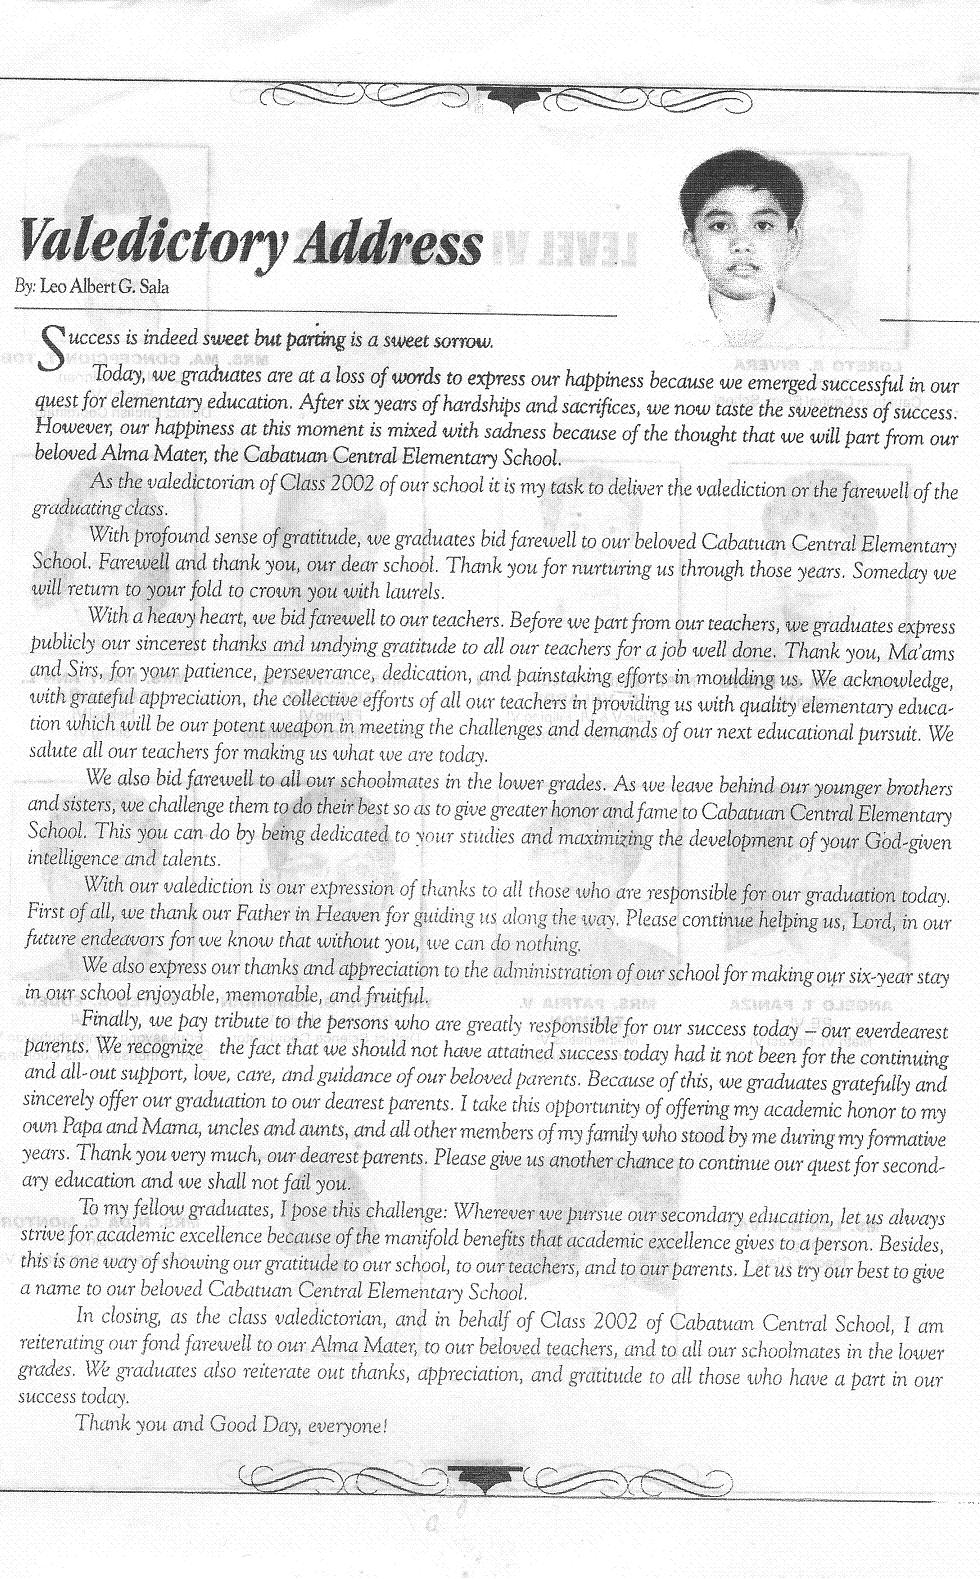 Valedictory Address
By: Leo Albert G. Sala
Success is indeed sweet but parting is a sweet sorrow.
Today, we graduates are at a loss of words to express our happiness because we emerged successful in our
quest for elementary education. After six years of hardships and sacrifices, we now taste the sweetness of success.
However, our happiness at this moment is mixed with sadness because of the thought that we will part from our
beloved Alma Mater, the Cabatuan Central Elementary School.
As the valedictorian of Class 2002 of our school it is my task to deliver the valediction or the farewell of the
graduating class.
With profound sense of gratitude, we graduates bid farewell to our beloved Cabatuan Central Elementary
School. Farewell and thank you, our dear school. Thank you for nurturing us through those years. Someday we
will return to your fold to crown you with laurels.
With a heavy heart, we bid farewell to our teachers. Before we part from our teachers, we graduates express
publicly our sincerest thanks and undying gratitude to all our teachers for a job well done. Thank you, Ma'ams
and Sirs, for your patience, perseverance, dedication, and painstaking efforts in moulding us. We acknowledge,
with grateful appreciation, the collective efforts of all our teachers in providing us with quality elementary educa-
tion which will be our potent weapon in meeting the challenges and demands of our next educational pursuit. We
salute all our teachers for making us what we are today.
We also bid farewell to all our schoolmates in the lower grades. As we leave behind our younger brothers
and sisters, we challenge them to do their best so as to give greater honor and fame to Cabatuan Central Elementary
School. This you can do by being dedicated to your studies and maximizing the development of your God-given
intelligence and talents.
With our valediction is our expression of thanks to all those who are responsible for our graduation today.
First of all, we thank our Father in Heaven for guiding us along the way. Please continue helping us, Lord, in our
future endeavors for we know that without you, we can do nothing.
We also express our thanks and appreciation to the administration of our school for making our six-year stay
in our school enjoyable, memorable, and fruitful.
Finally, we pay tribute to the persons who are greatly responsible for our success today – our everdearest
parents. We recognize the fact that we should not have attained success today had it not been for the continuing
and all-out support, love, care, and guidance of our beloved parents. Because of this, we graduates gratefully and
sincerely offer our graduation to our dearest parents. I take this opportunity of offering my academic honor to my
own Papa and Mama, uncles and aunts, and all other members of my family who stood by me during my formative
years. Thank you very much, our dearest parents. Please give us another chance to continue our quest for second-
ary education and we shall not fail you.
To my fellow graduates, I pose this challenge: Wherever we pursue our secondary education, let us always
strive for academic excellence because of the manifold benefits that academic excellence gives to a person. Besides,
this is one way of showing our gratitude to our school, to our teachers, and to our parents. Let us try our best to give
a name to our beloved Cabatuan Central Elementary School.
In closing, as the class valedictorian, and in behalf of Class 2002 of Cabatuan Central School, I am
reiterating our fond farewell to our Alma Mater, to our beloved teachers, and to all our schoolmates in the lower
grades. We graduates also reiterate out thanks, appreciation, and gratitude to all those who have a part in our
success today.
Thank you and Good Day, everyone!